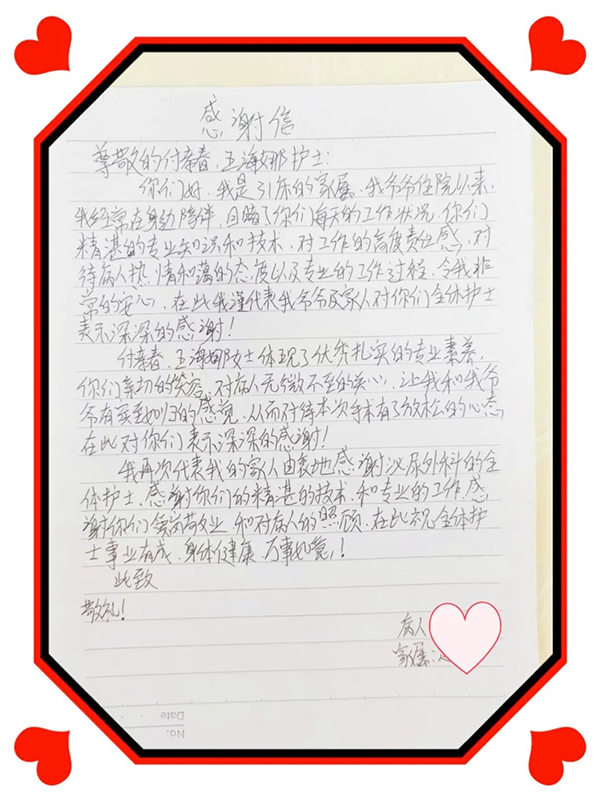 感谢信
尊敬的付新春、王海娜护士:
你们好,我是31床的家属,我爷爷住院以来,
我经常在身边陪伴,目睹了你们每天的工作状况,你们
精湛的专业知识和技术,对工作的高度责任感,对
待病人热情和蔼的态度以及专业的工作过程,令我非
常的安心,在此我谨代表我爷爷及家人对你们全体护士
表示深深的感谢!
付新春、王海娜女士体现了优秀扎实的专业素养,
你们亲切的笑容,对病人无微不至的关心,让我和我爷
爷有宾至如归的感觉,从而对待本次手术有了放松的心态
在此对你们表示深深的感谢!
我再次代表我的家人由衷地感谢泌尿外科的全
体护士,感谢你们的精湛的技术,和专业的工作,感
谢你们爱岗敬业,和对病人的照顾,在此祝全体护
士事业有成,身体健康,万事如意!
此致
敬礼!
病人
家属:
Date
No.